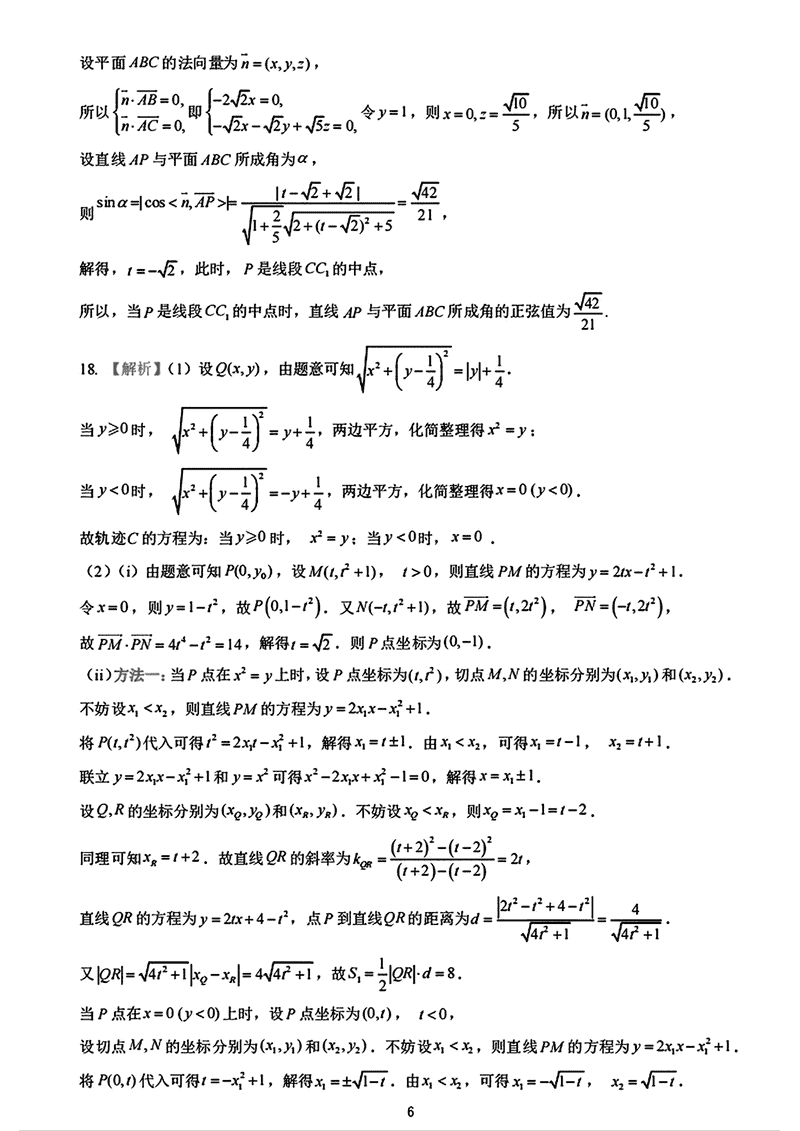 设平面 ABC 的法向量为 $\vec{n}=(x,y,z)$，
所以 $\begin{cases}\vec{n}\cdot\overrightarrow{AB}=0,\\ \vec{n}\cdot\overrightarrow{AC}=0,\end{cases}$ 即 $\begin{cases}-2\sqrt{2}x=0,\\ -\sqrt{2}x-\sqrt{2}y+\sqrt{5}z=0,\end{cases}$ 令 $y=1$，则 $x=0,z=\frac{\sqrt{10}}{5}$，所以 $\vec{n}=(0,1,\frac{\sqrt{10}}{5})$，
设直线 AP 与平面 ABC 所成角为 $\alpha$，
则 $\sin\alpha=|\cos<\vec{n},\overrightarrow{AP}>|=\frac{|t-\sqrt{2}+\sqrt{2}|}{\sqrt{1+\frac{2}{5}}\sqrt{2+(t-\sqrt{2})^2+5}}=\frac{\sqrt{42}}{21}$，
解得，$t=-\sqrt{2}$，此时，P 是线段 $CC_1$ 的中点，
所以，当 P 是线段 $CC_1$ 的中点时，直线 AP 与平面 ABC 所成角的正弦值为 $\frac{\sqrt{42}}{21}$.
18. 【解析】（1）设 $Q(x,y)$，由题意可知 $\sqrt{x^2+\left(y-\frac{1}{4}\right)^2}=|y|+\frac{1}{4}$.
当 $y\geqslant 0$ 时，$\sqrt{x^2+\left(y-\frac{1}{4}\right)^2}=y+\frac{1}{4}$，两边平方，化简整理得 $x^2=y$；
当 $y<0$ 时，$\sqrt{x^2+\left(y-\frac{1}{4}\right)^2}=-y+\frac{1}{4}$，两边平方，化简整理得 $x=0\ (y<0)$.
故轨迹 C 的方程为：当 $y\geqslant 0$ 时，$x^2=y$；当 $y<0$ 时，$x=0$ .
（2）（i）由题意可知 $P(0,y_0)$，设 $M(t,t^2+1)$，$t>0$，则直线 PM 的方程为 $y=2tx-t^2+1$.
令 $x=0$，则 $y=1-t^2$，故 $P\left(0,1-t^2\right)$. 又 $N(-t,t^2+1)$，故 $\overrightarrow{PM}=\left(t,2t^2\right)$，$\overrightarrow{PN}=\left(-t,2t^2\right)$，
故 $\overrightarrow{PM}\cdot\overrightarrow{PN}=4t^4-t^2=14$，解得 $t=\sqrt{2}$. 则 P 点坐标为 $(0,-1)$.
（ii）方法一：当 P 点在 $x^2=y$ 上时，设 P 点坐标为 $(t,t^2)$，切点 M,N 的坐标分别为 $(x_1,y_1)$ 和 $(x_2,y_2)$.
不妨设 $x_1<x_2$，则直线 PM 的方程为 $y=2x_1x-x_1^2+1$.
将 $P(t,t^2)$ 代入可得 $t^2=2x_1t-x_1^2+1$，解得 $x_1=t\pm1$. 由 $x_1<x_2$，可得 $x_1=t-1$，$x_2=t+1$.
联立 $y=2x_1x-x_1^2+1$ 和 $y=x^2$ 可得 $x^2-2x_1x+x_1^2-1=0$，解得 $x=x_1\pm1$.
设 Q,R 的坐标分别为 $(x_Q,y_Q)$ 和 $(x_R,y_R)$. 不妨设 $x_Q<x_R$，则 $x_Q=x_1-1=t-2$.
同理可知 $x_R=t+2$. 故直线 QR 的斜率为 $k_{QR}=\frac{(t+2)^2-(t-2)^2}{(t+2)-(t-2)}=2t$，
直线 QR 的方程为 $y=2tx+4-t^2$，点 P 到直线 QR 的距离为 $d=\frac{|2t^2-t^2+4-t^2|}{\sqrt{4t^2+1}}=\frac{4}{\sqrt{4t^2+1}}$.
又 $|QR|=\sqrt{4t^2+1}|x_Q-x_R|=4\sqrt{4t^2+1}$，故 $S_1=\frac{1}{2}|QR|\cdot d=8$.
当 P 点在 $x=0\ (y<0)$ 上时，设 P 点坐标为 $(0,t)$，$t<0$，
设切点 M,N 的坐标分别为 $(x_1,y_1)$ 和 $(x_2,y_2)$. 不妨设 $x_1<x_2$，则直线 PM 的方程为 $y=2x_1x-x_1^2+1$.
将 $P(0,t)$ 代入可得 $t=-x_1^2+1$，解得 $x_1=\pm\sqrt{1-t}$. 由 $x_1<x_2$，可得 $x_1=-\sqrt{1-t}$，$x_2=\sqrt{1-t}$.
6